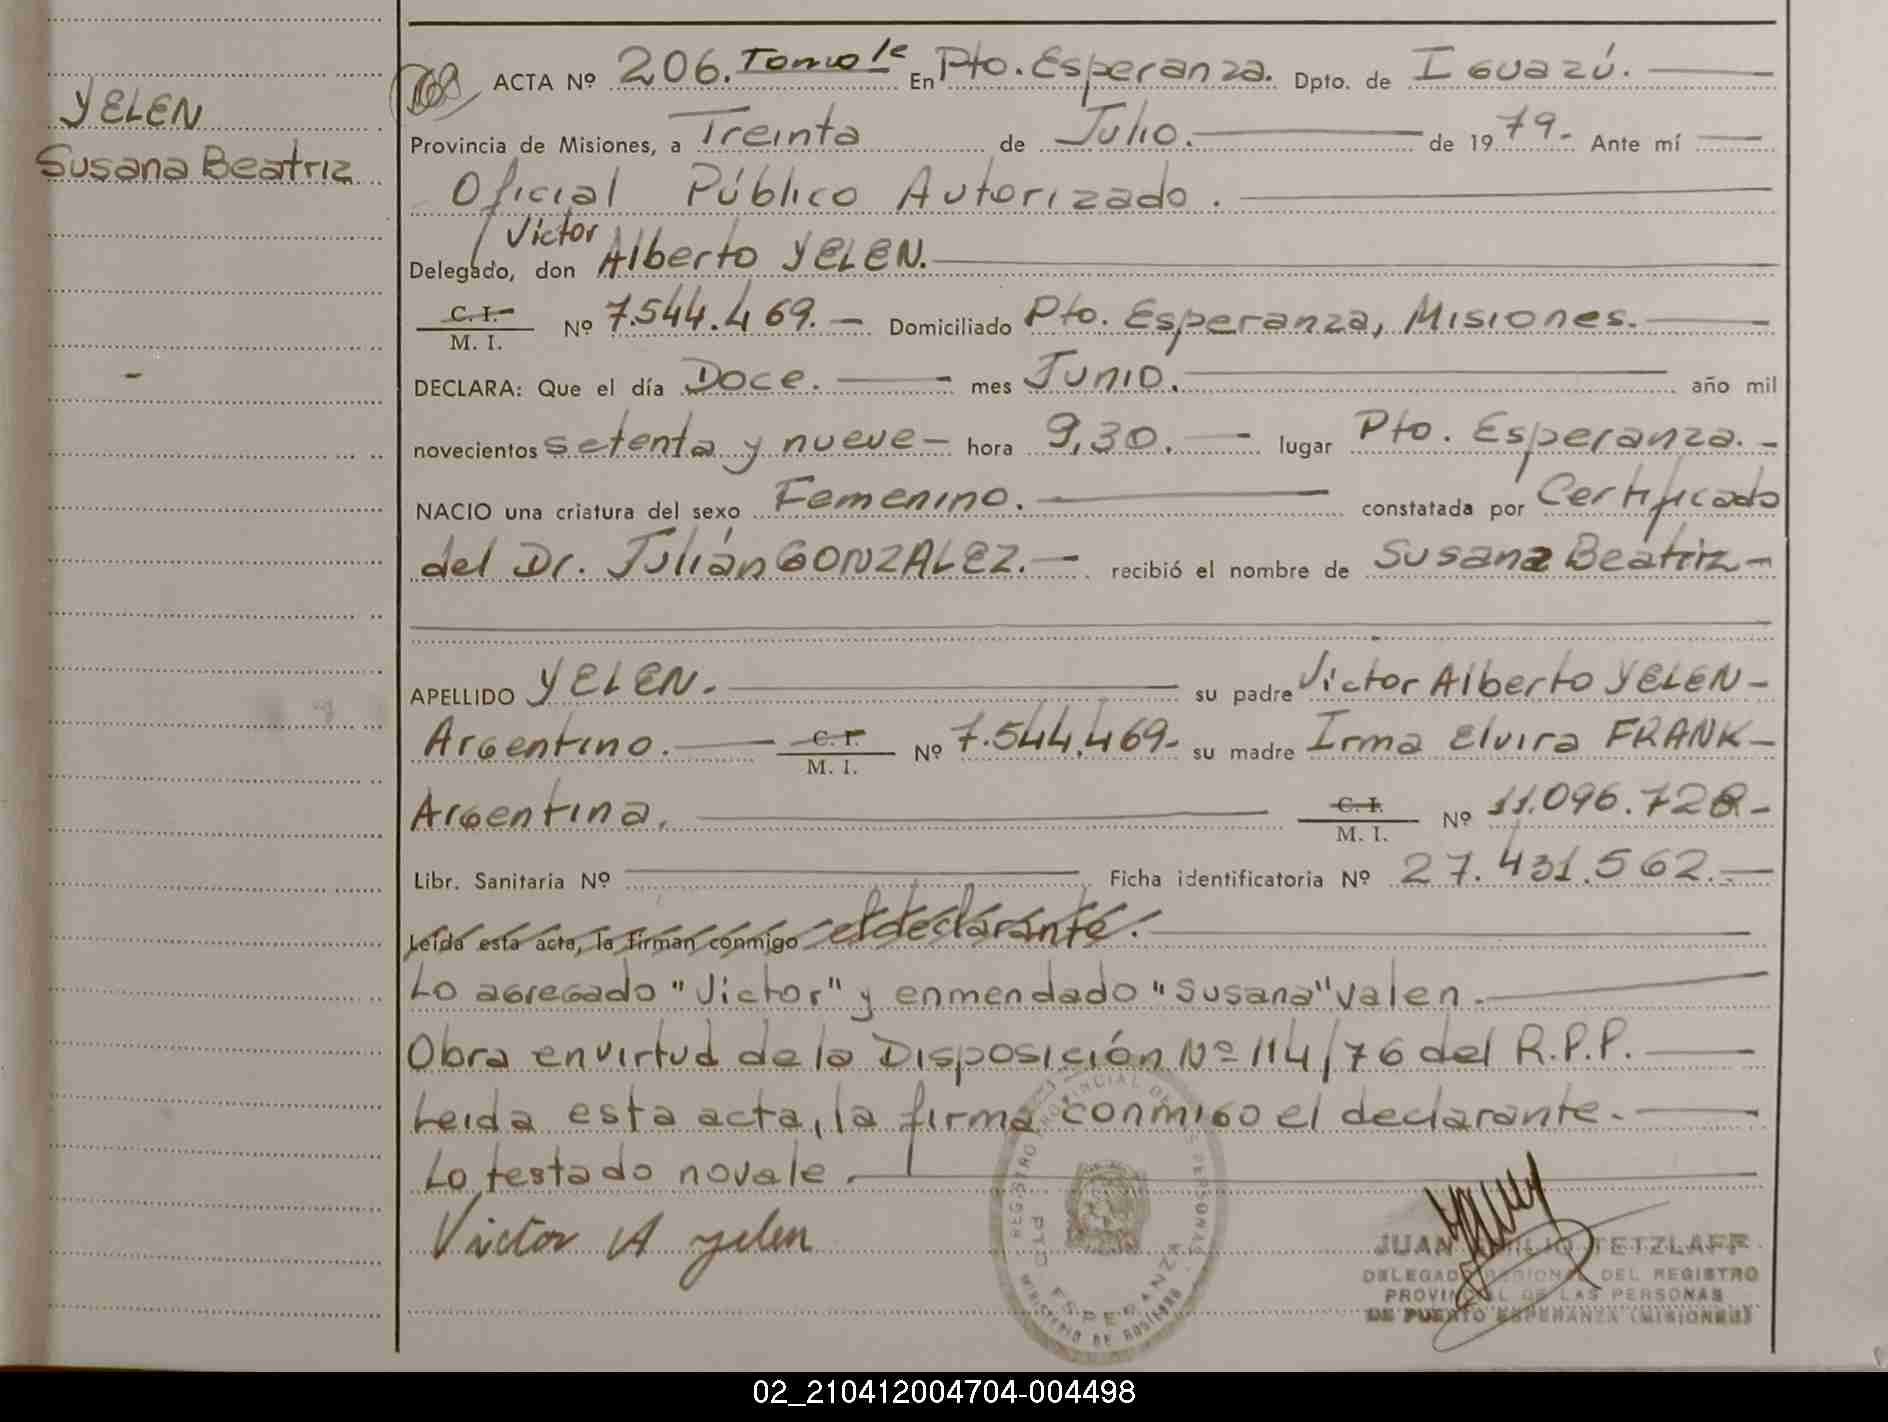 YELEN
Susana Beatriz
168 ACTA Nº 206. Tomo 1º En Pto. Esperanza. Dpto. de Iguazú.
Provincia de Misiones, a Treinta de Julio. de 1979. Ante mí
Oficial Público Autorizado.
Victor
Delegado, don Alberto YELEN.
C. I.
M. I. Nº 7.544.469. Domiciliado Pto. Esperanza, Misiones.
DECLARA: Que el día Doce. mes Junio. año mil
novecientos setenta y nueve hora 9,30. lugar Pto. Esperanza.
NACIO una criatura del sexo Femenino. constatada por Certificado
del Dr. Julián GONZALEZ. recibió el nombre de Susana Beatriz
APELLIDO YELEN. su padre Victor Alberto YELEN
Argentino. C. I. M. I. Nº 7.544.469 su madre Irma Elvira FRANK
Argentina. C. I. M. I. Nº 11.096.728
Libr. Sanitaria Nº Ficha identificatoria Nº 27.431.562.
Leída esta acta, la firman conmigo el declarante.
Lo agregado "Victor" y enmendado "Susana" Valen.
Obra en virtud de la Disposición Nº 114/76 del R.P.P.
Leida esta acta, la firma conmigo el declarante.
Lo testado no vale.
Victor A Yelen
REGISTRO PROVINCIAL DE LAS PERSONAS
PTO ESPERANZA
MINISTERIO DE GOBIERNO
JUAN EMILIO TETZLAFF
DELEGADO REGIONAL DEL REGISTRO
PROVINCIAL DE LAS PERSONAS
DE PUERTO ESPERANZA (MISIONES)
02_210412004704-004498